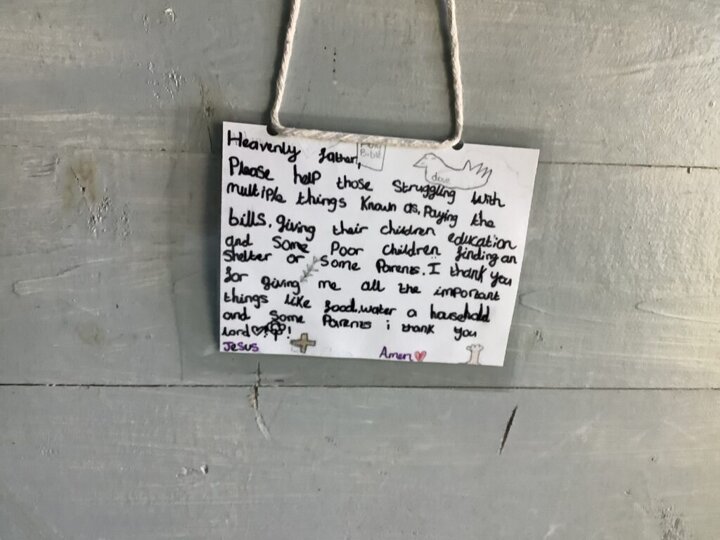 Heavenly father,
Bible
dove
Please help those Struggling with
multiple things Known as, Paying the
bills, giving their children education
and Some Poor children finding an
Shelter or Some Parents. I thank you
for giving me all the important
things like food, water a household
and Some Parents i thank you
lord !
Jesus
Amen